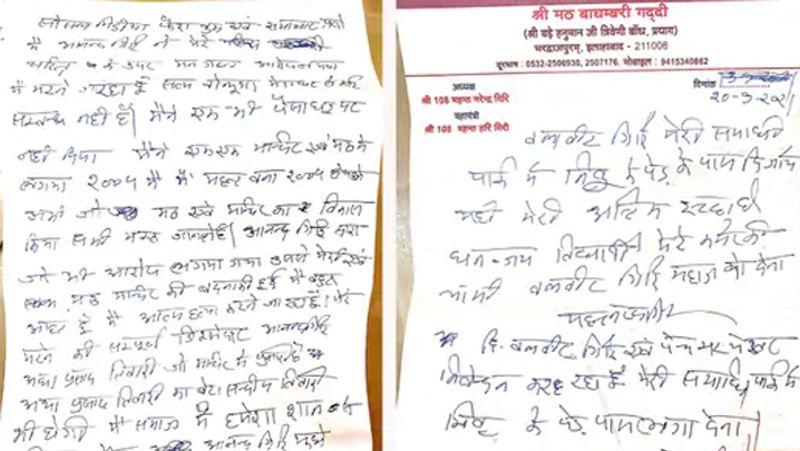 सोशल मीडिया फेस बुक एवं समाचार पत्रो
मे आनन्द गिरि ने मेरे
के उपर मन गढत
मै मरने जा रहा हूँ सत्य बोलूगा मेरा घर से कोई
सम्बन्ध नही है। मैने एक भी पैसा घर पर
नही दिया मैने एक एक मन्दिर एवं मठ मे
लगाया २००४ मे मै महन्त बना २००४ से
अभी जो मठ एवं मन्दिर का विकास
किया सभी भक्त जानते है। आनन्द गिरि द्वारा
जो भी आरोप लगाया गया उससे मेरी एवं
मठ मन्दिर की बदनामी हुई मै बहुत
आहत हूँ मै आत्म हत्या करने जा रहा हूँ। मेरे
मरने की सम्पूर्ण जिम्मेदारी आनन्द गिरि
आद्या प्रसाद तिवारी जो मन्दिर मे पुजारी है
आद्या प्रसाद तिवारी का बेटा सन्दीप तिवारी
की होगी मै समाज मे हमेशा शान से
आनन्द गिरि
श्री मठ बाघम्बरी गद्दी
(श्री बड़े हनुमान जी त्रिवेणी बाँध, प्रयाग)
भरद्वाजपुरम्, इलाहाबाद - 211006
दूरभाष : 0532-2506930, 2507176, मोबाइल : 9415340662
अध्यक्ष
श्री 108 महन्त नरेन्द्र गिरि
महामंत्री
श्री 108 महन्त हरि गिरी
दिनांक
२०-9-२०२१
बलवीर गिरि मेरी समाधी
पार्क मे निबू के पेड़ के पास दि जाय
यही मेरी अंतिम इच्छा है
धनन्जय विद्यार्थी मेरे कमरे की
चाभी बलवीर गिरि महाराज को देना
बलवीर गिरि एवं पंच परमेश्वर
निवेदन कर रहा हूँ मेरी समाधि पार्क मे
निबू के पेड़ पास लगा देना।